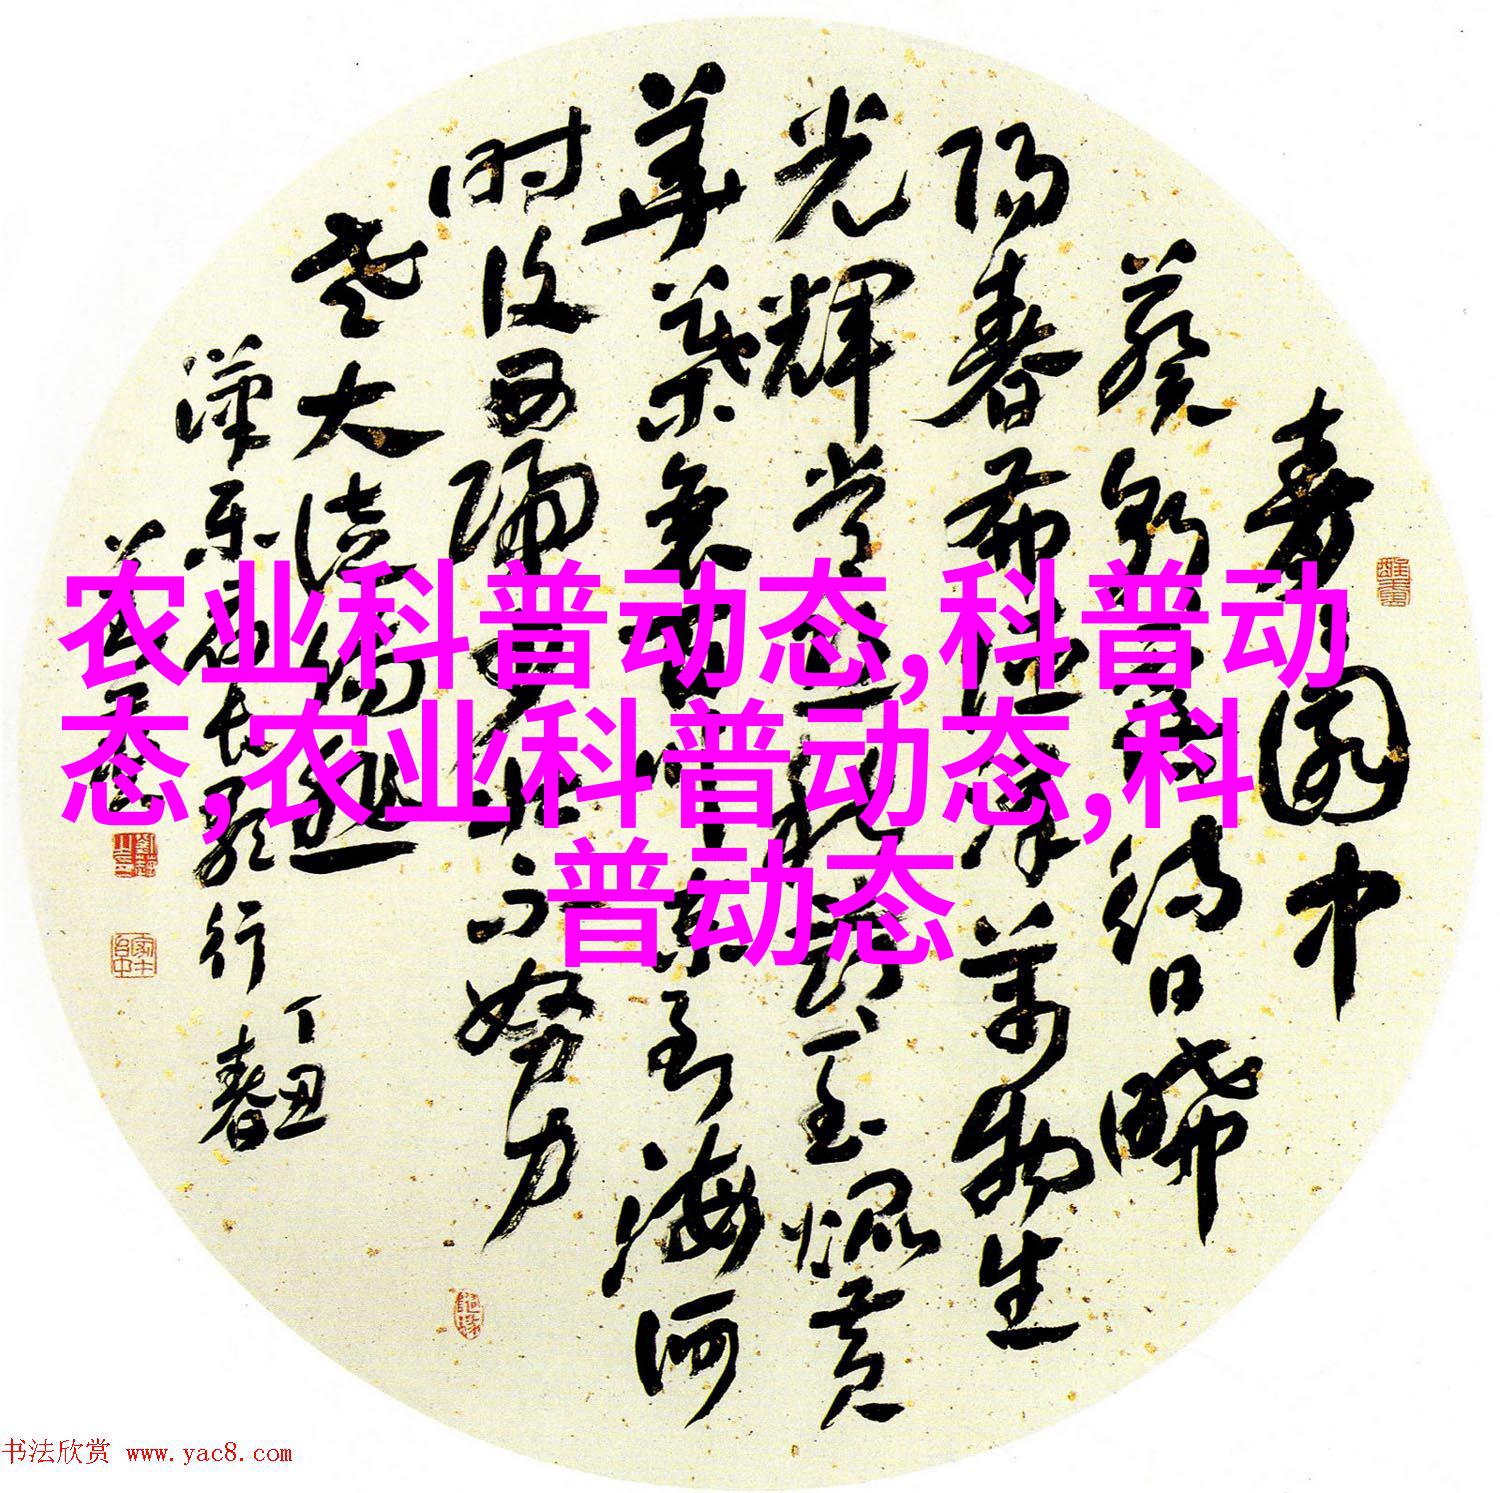 青青園中
葵朝露待日晞
阳春布德泽萬物生
光輝常恐秋節至焜黄
華葉衰百川東到海何
时復西歸少壮不努力
老大徒傷悲
漢乐府长歌行 丁丑春
农业科普动态,科普动
态,农业科普动态,科
普动态
书法欣赏 www.yac8.com